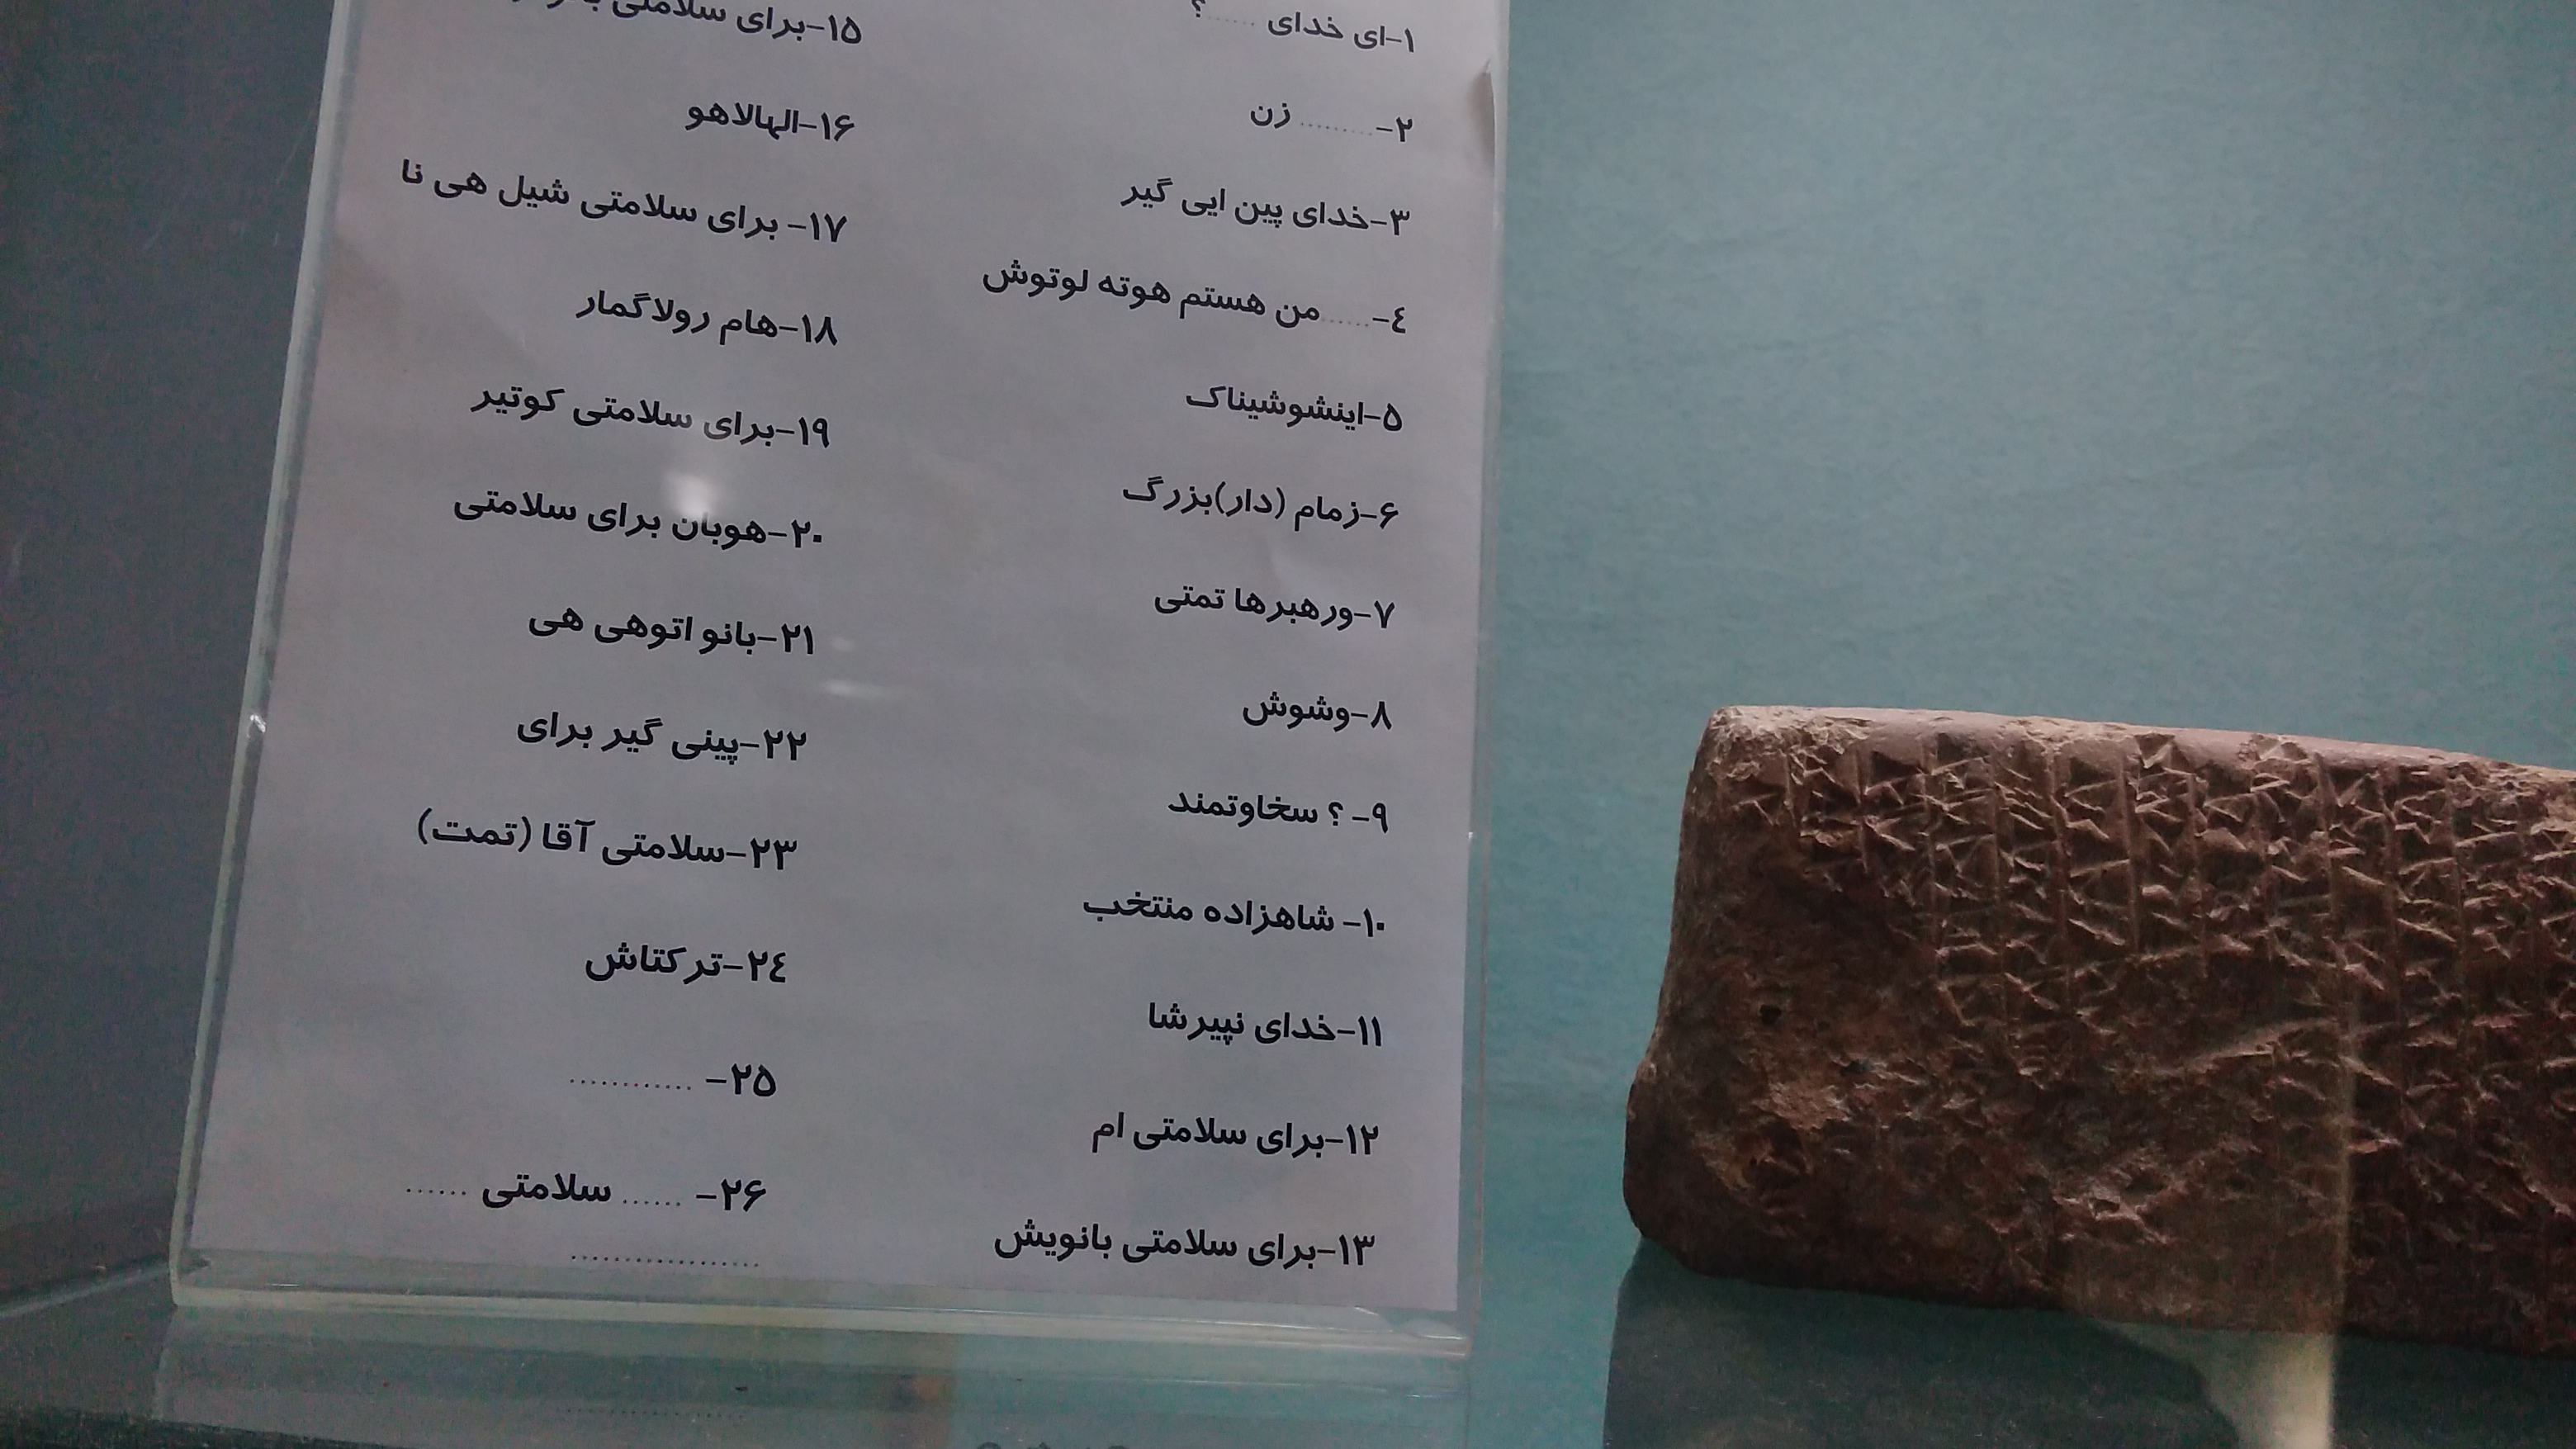 ۱-ای خدای ......؟
۲-......... زن
۳-خدای پین ایی گیر
٤-......من هستم هوته لوتوش
۵-اینشوشیناک
۶-زمام (دار)بزرگ
۷-ورهبرها تمتی
۸-وشوش
۹- ؟ سخاوتمند
۱۰- شاهزاده منتخب
۱۱-خدای نپیرشا
۱۲-برای سلامتی ام
۱۳-برای سلامتی بانویش
۱۵-برای سلامتی
۱۶-الهالاهو
۱۷- برای سلامتی شیل هی نا
۱۸-هام رولاگمار
۱۹-برای سلامتی کوتیر
۲۰-هوبان برای سلامتی
۲۱-بانو اتوهی هی
۲۲-پینی گیر برای
۲۳-سلامتی آقا (تمت)
۲٤-ترکتاش
۲۵- ............
۲۶- ...... سلامتی ......
..................